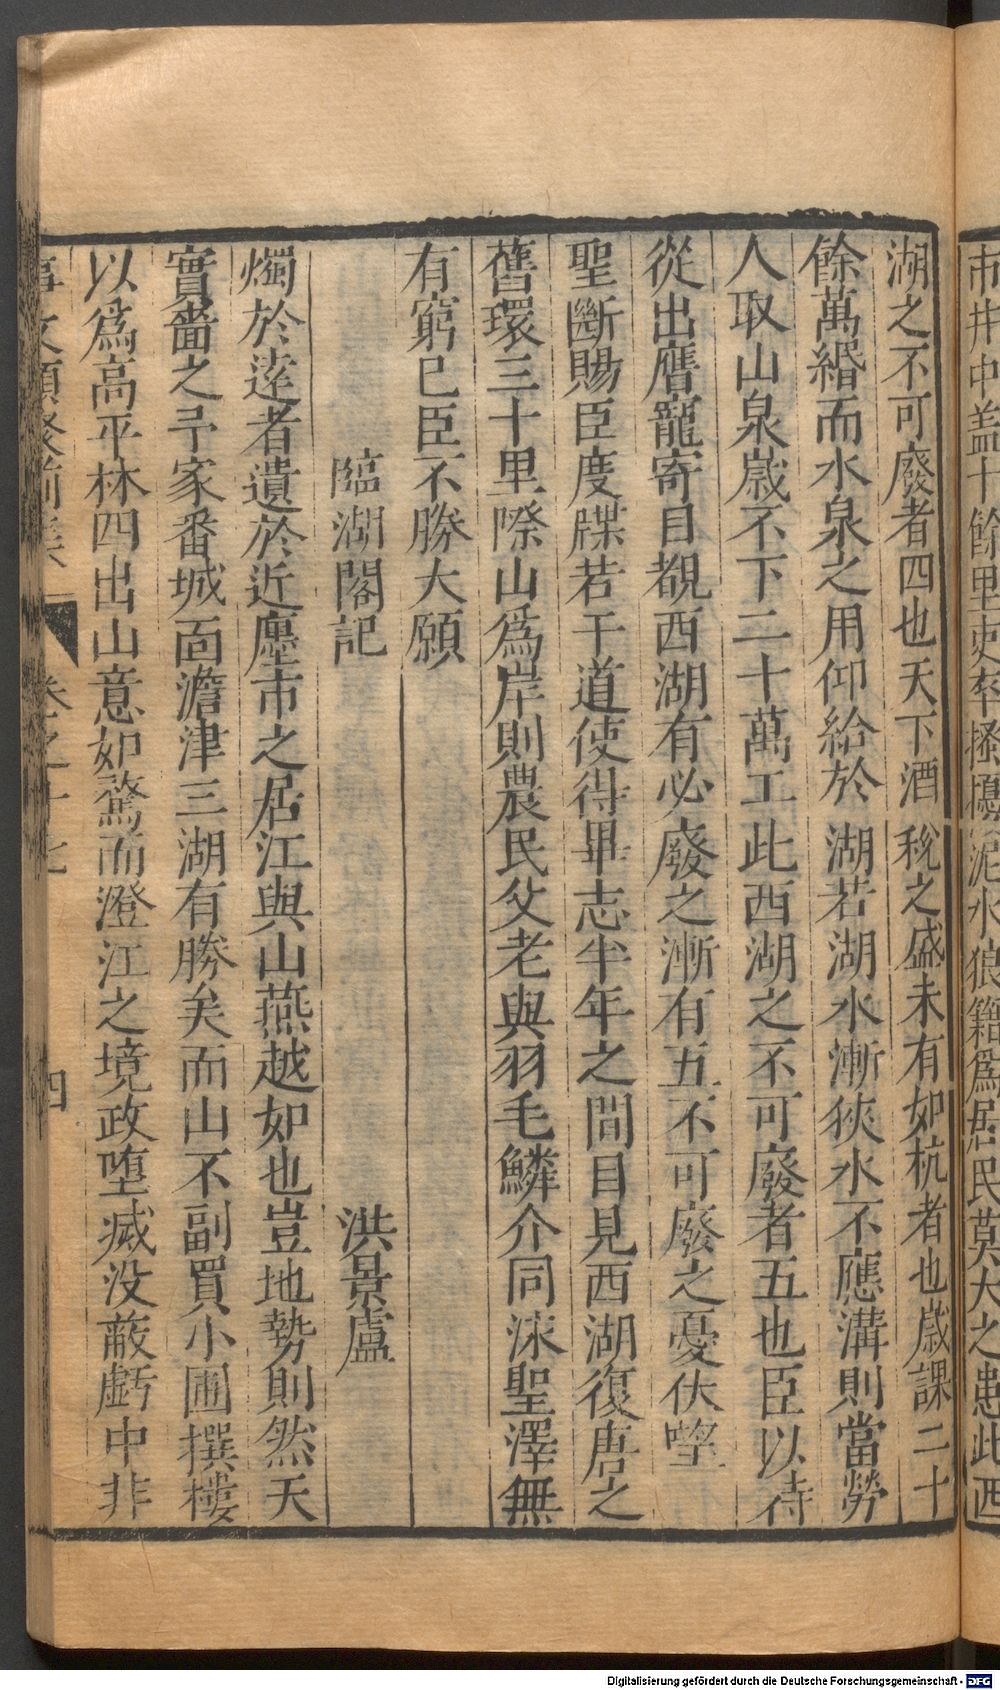 市井中盖十餘里吏卒搔擾泥水狼籍爲居民莫大之患此西
湖之不可廢者四也天下酒稅之盛未有如杭者也歲課二十
餘萬緡而水泉之用仰給於湖若湖水漸狹水不應溝則當勞
人取山泉歲不下二十萬工此西湖之不可廢者五也臣以侍
從出膺寵寄目覩西湖有必廢之漸有五不可廢之憂伏望
聖斷賜臣度牒若干道使得畢志半年之間目見西湖復唐之
舊環三十里際山爲岸則農民父老與羽毛鱗介同泳聖澤無
有窮已臣不勝大願
臨湖閣記 洪景盧
燭於逺者遺於近廛市之居江與山燕越如也豈地勢則然天
實嗇之予家番城面澹津三湖有勝矣而山不副買小圃撰樓
以爲高平林四出山意如驚而澄江之境政墮滅没蔽虧中非
事文類聚前集 卷之十七 四
Digitalisierung gefördert durch die Deutsche Forschungsgemeinschaft - DFG